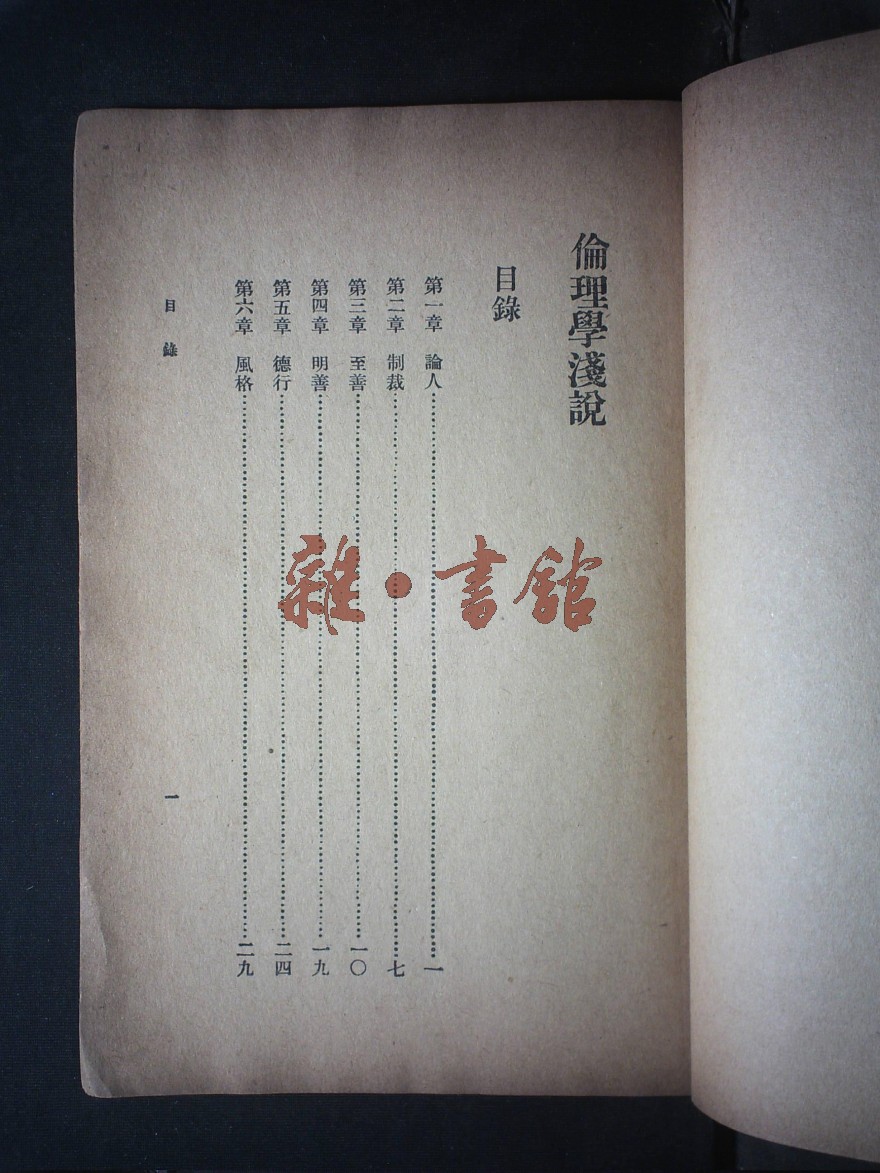 倫理學淺說
目錄
第一章 論人……一
第二章 制裁……七
第三章 至善……一〇
第四章 明善……一九
第五章 德行……二四
第六章 風格……二九
目錄 一
雜·書館